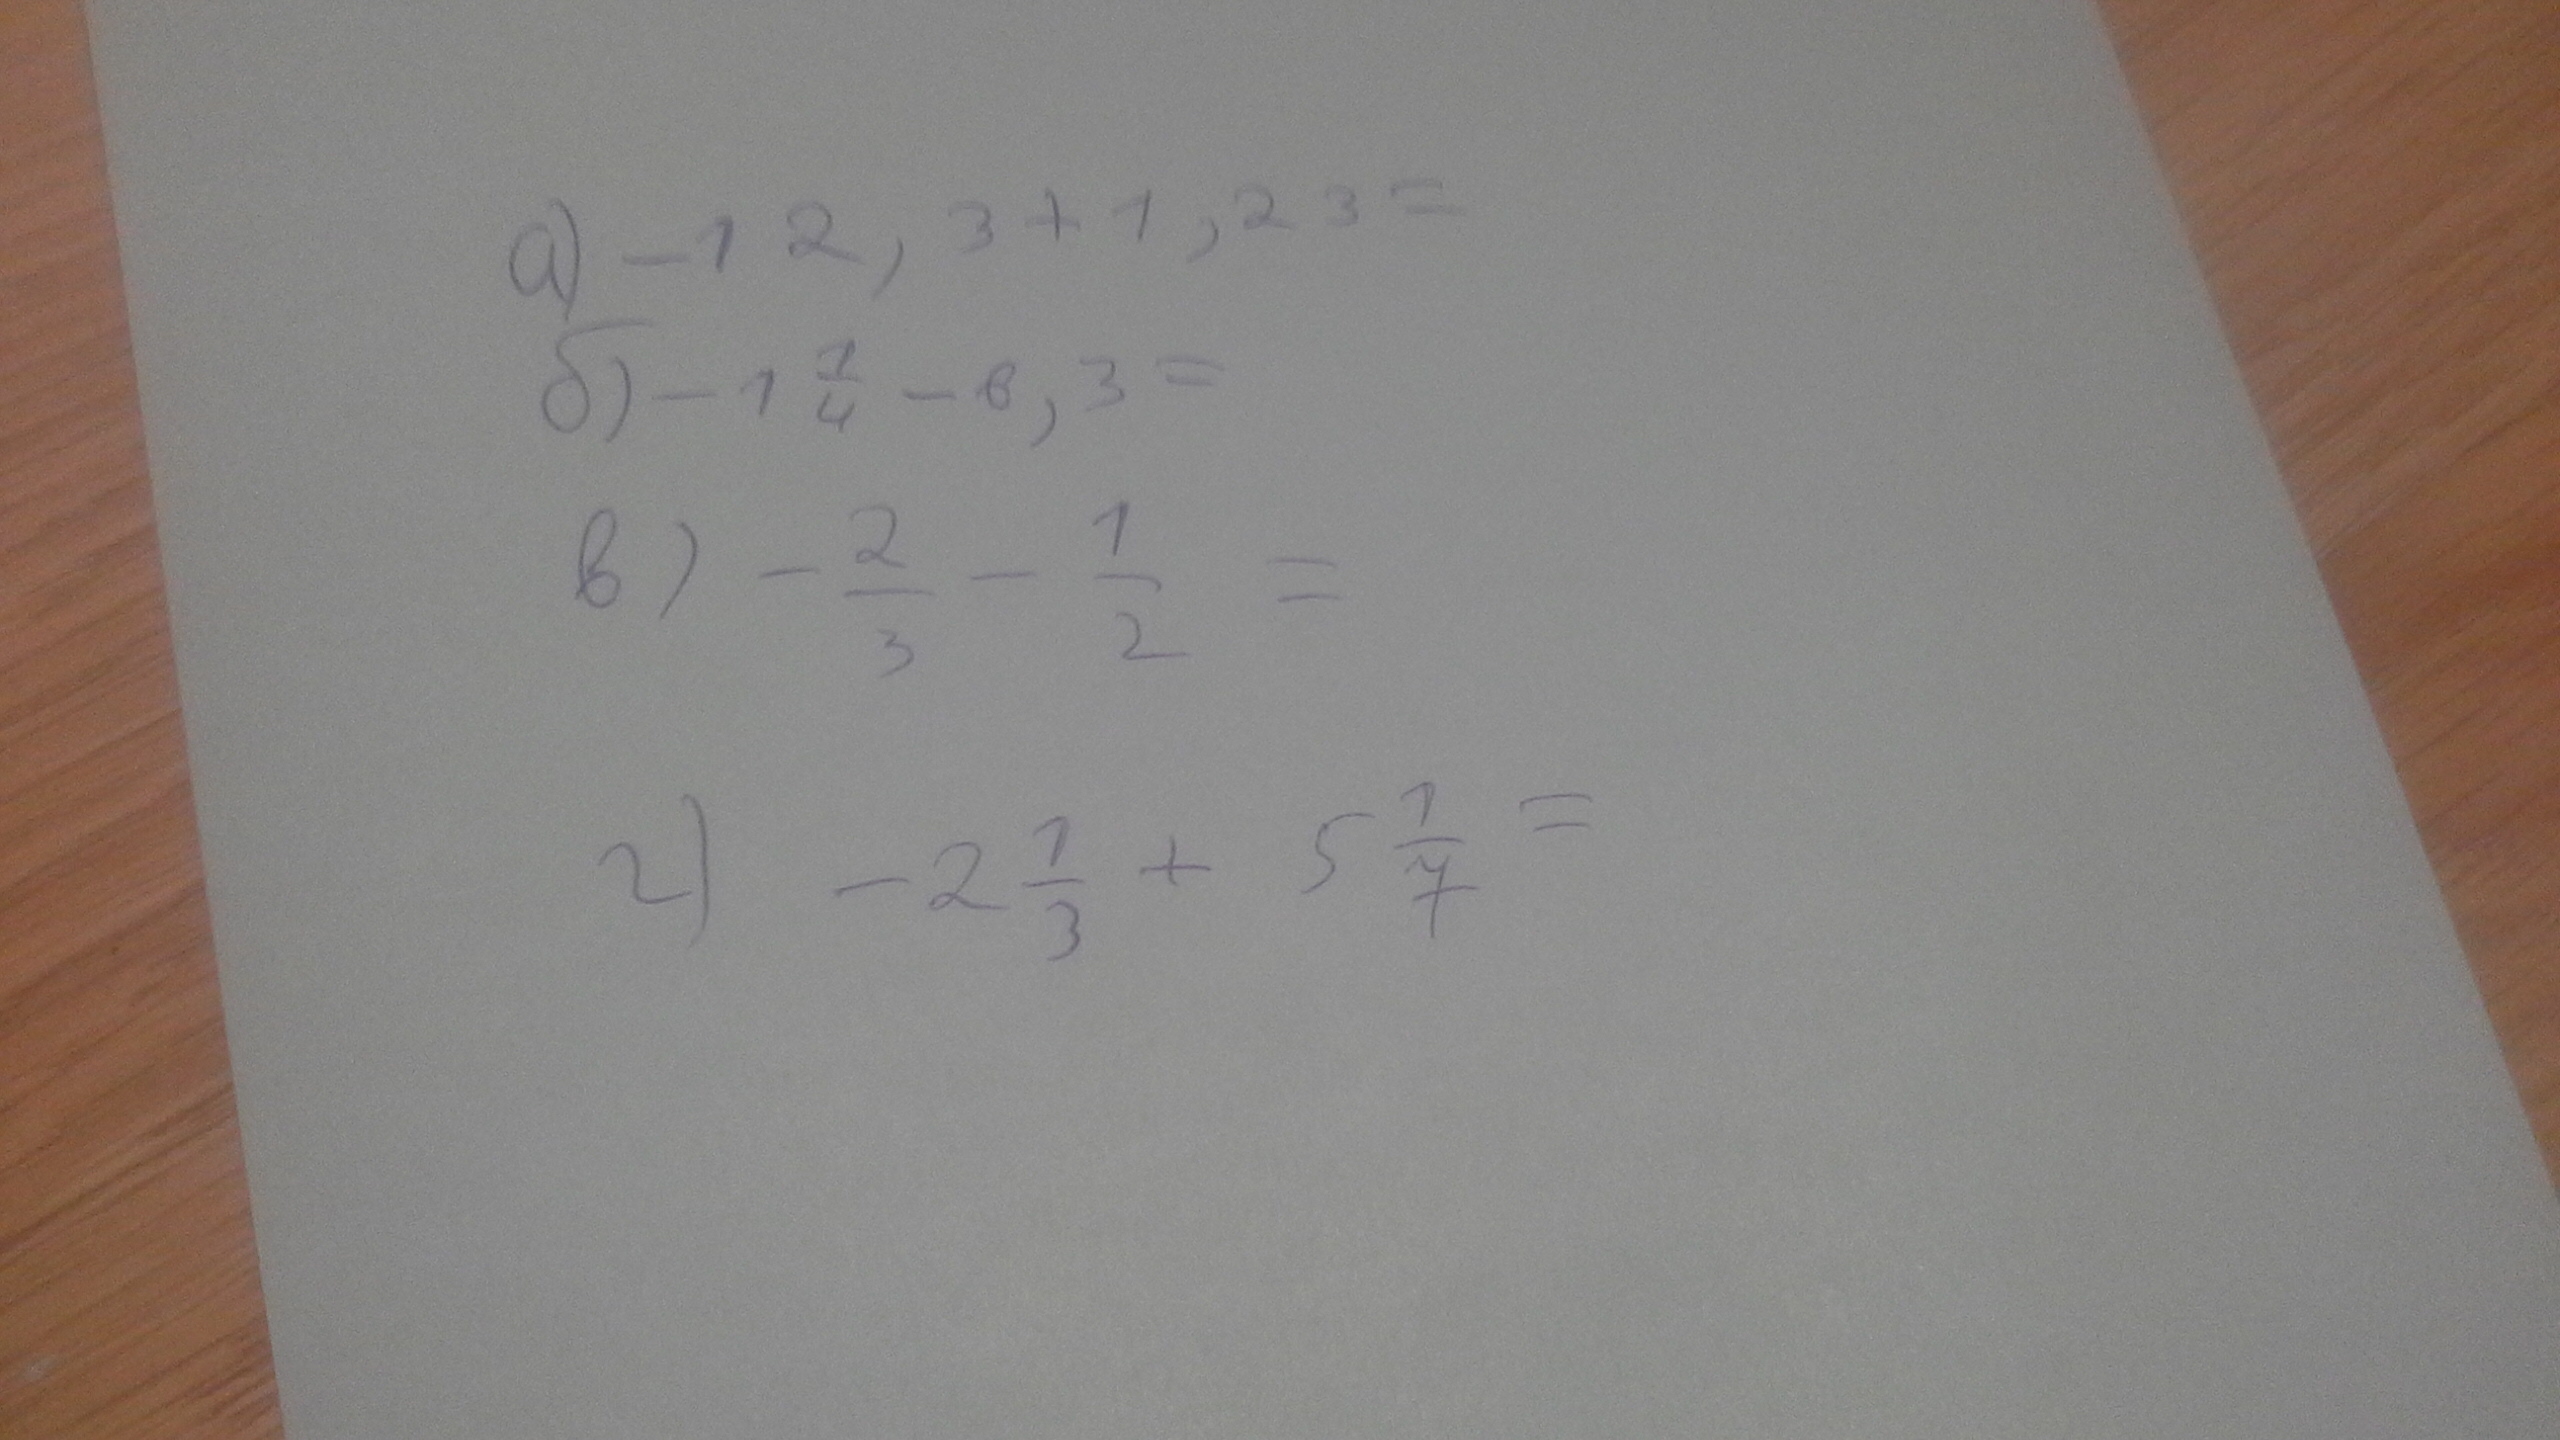 а) -12,3+1,23=
б) -1 1/4 - 6,3=
в) - 2/3 - 1/2 =
г) -2 1/3 + 5 1/7 =